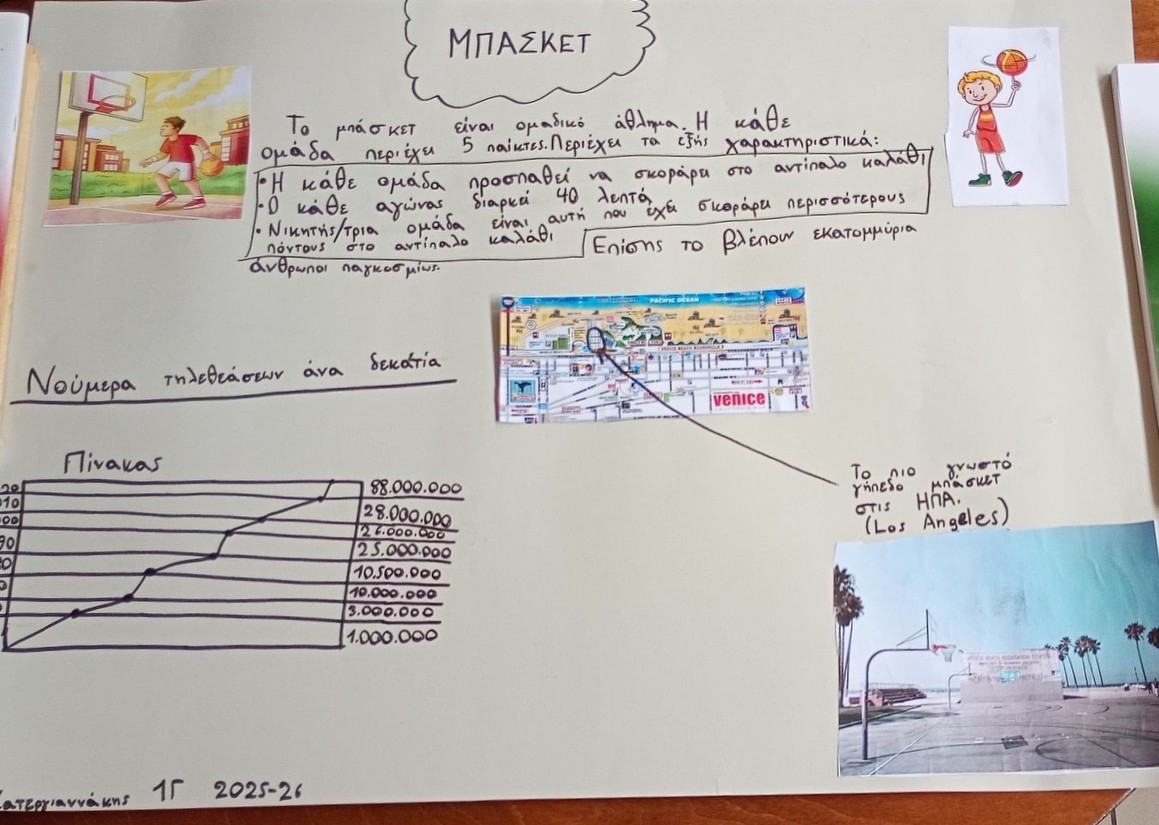 ΜΠΑΣΚΕΤ
Το μπάσκετ είναι ομαδικό άθλημα. Η κάθε
ομάδα περιέχει 5 παίκτες. Περιέχει τα εξής χαρακτηριστικά:
• Η κάθε ομάδα προσπαθεί να σκοράρει στο αντίπαλο καλάθι
• Ο κάθε αγώνας διαρκεί 40 λεπτά
• Νικητής/τρια ομάδα είναι αυτή που έχει σκοράρει περισσότερους
πόντους στο αντίπαλο καλάθι
Επίσης το βλέπουν εκατομμύρια
άνθρωποι παγκοσμίως.
PACIFIC OCEAN
venice
Νούμερα τηλεθεάσεων άνα δεκατία
Πίνακας
88.000.000
28.000.000
26.000.000
25.000.000
10.500.000
10.000.000
3.000.000
1.000.000
Το πιο γνωστό
γήπεδο μπάσκετ
στις ΗΠΑ.
(Los Angeles)
1Γ 2025-26